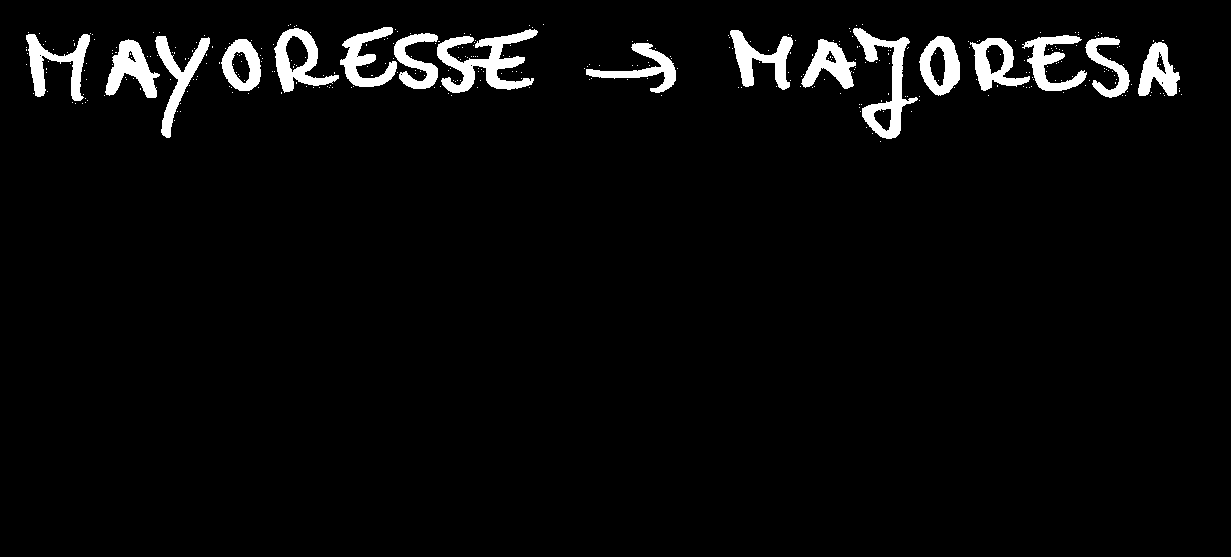 MAYORESSE → MAJORESA